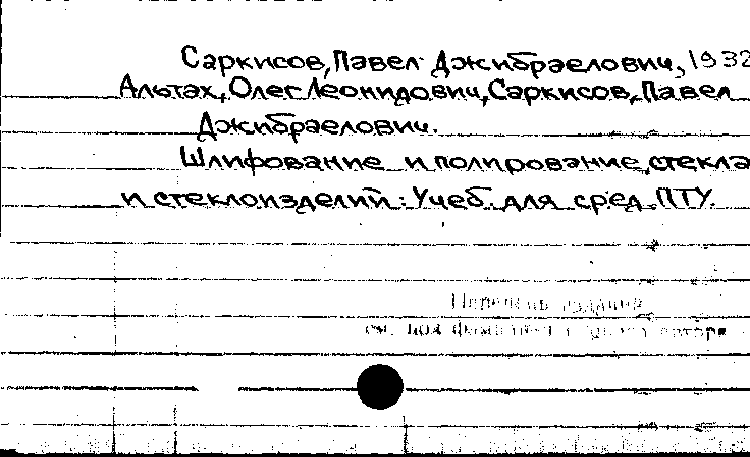 Саркисов, Павел Джибраелович, 1932
Альтах, Олег Леонидович, Саркисов, Павел
Джибраелович.
Шлифование и полирование стекла
и стеклоизделий: Учеб. для сред. ПТУ.
Перечень изданий
см. под фамилией автора